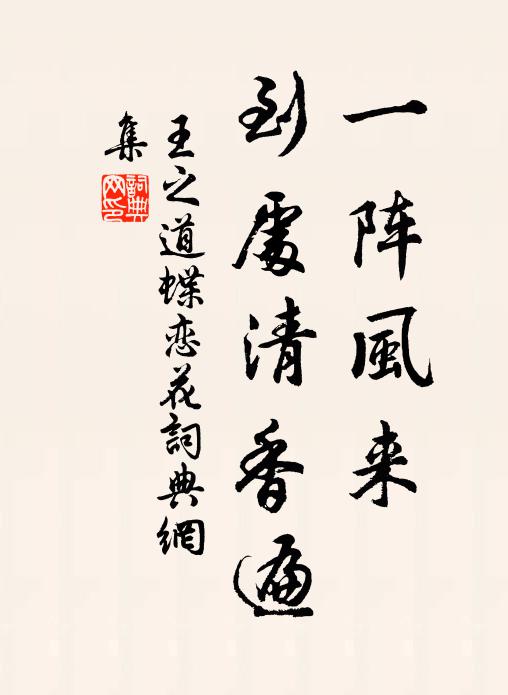 一阵風来
到處清香遍
王之道蝶恋花詞典網
集
詞典網印